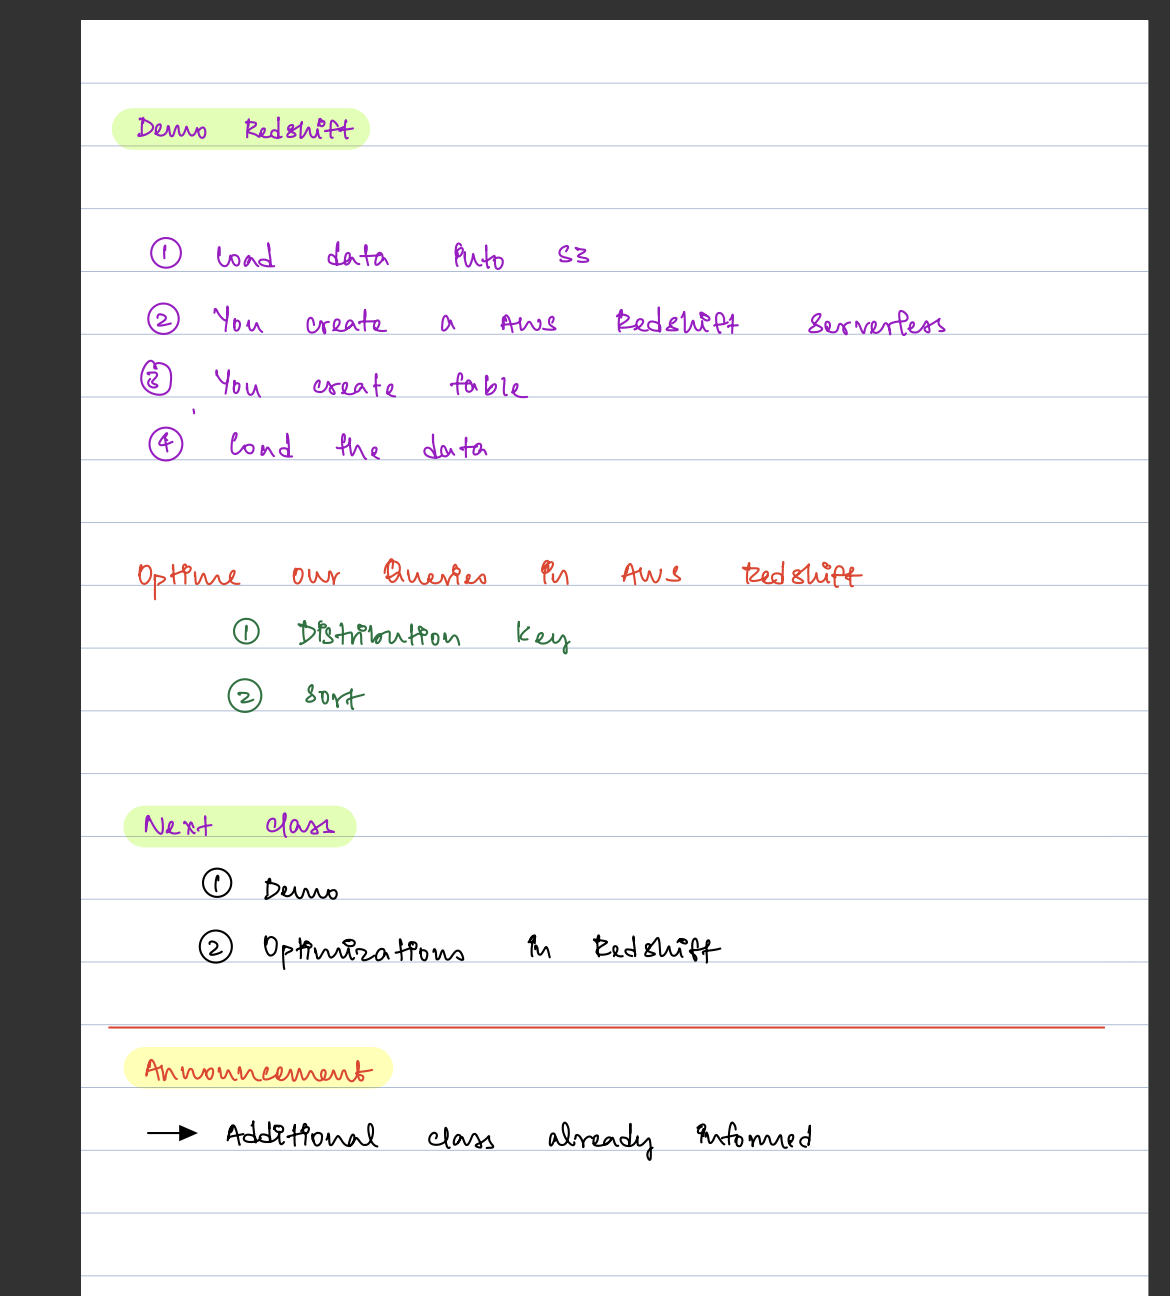 Demo Redshift
① Load data into S3
② You create a AWS Redshift Serverless
③ You create table
④ Load the data
Optime our Queries in AWS Redshift
① Distribution Key
② Sort
Next class
① Demo
② Optimizations in Redshift
Announcement
→ Additional class already informed